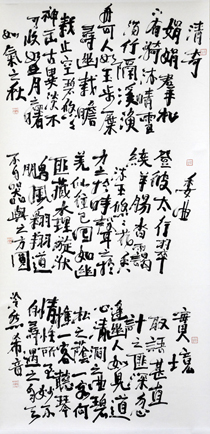 清奇
娟娟羣松
下有漪流晴雪
滿汀隔溪漁
舟可人如玉步屧
尋幽載瞻
載止空碧悠悠
神出古異淡不
可收如月之曙
如氣之秋
委曲
登彼太行翠
繞羊腸杳靄
流玉悠悠花香
力之於時聲之於
羌似往已回如幽
匪藏水理漩洑
鵬風翱翔道
不自器與之方圓
實境
取語甚直
計思匪深忽
逢幽人如見道
心清澗之曲碧
松之陰一客荷
樵一客聽琴
情性所至妙不
自尋遇之自天
泠然希音